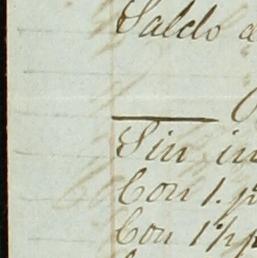 Saldo a
Sin in
Con 1. p
Con 1½ p